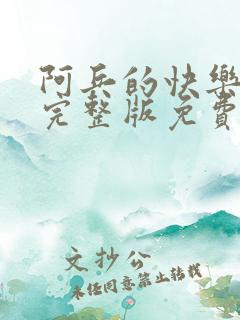 阿兵的快樂
完整版免費
文抄公
未经同意禁止转载